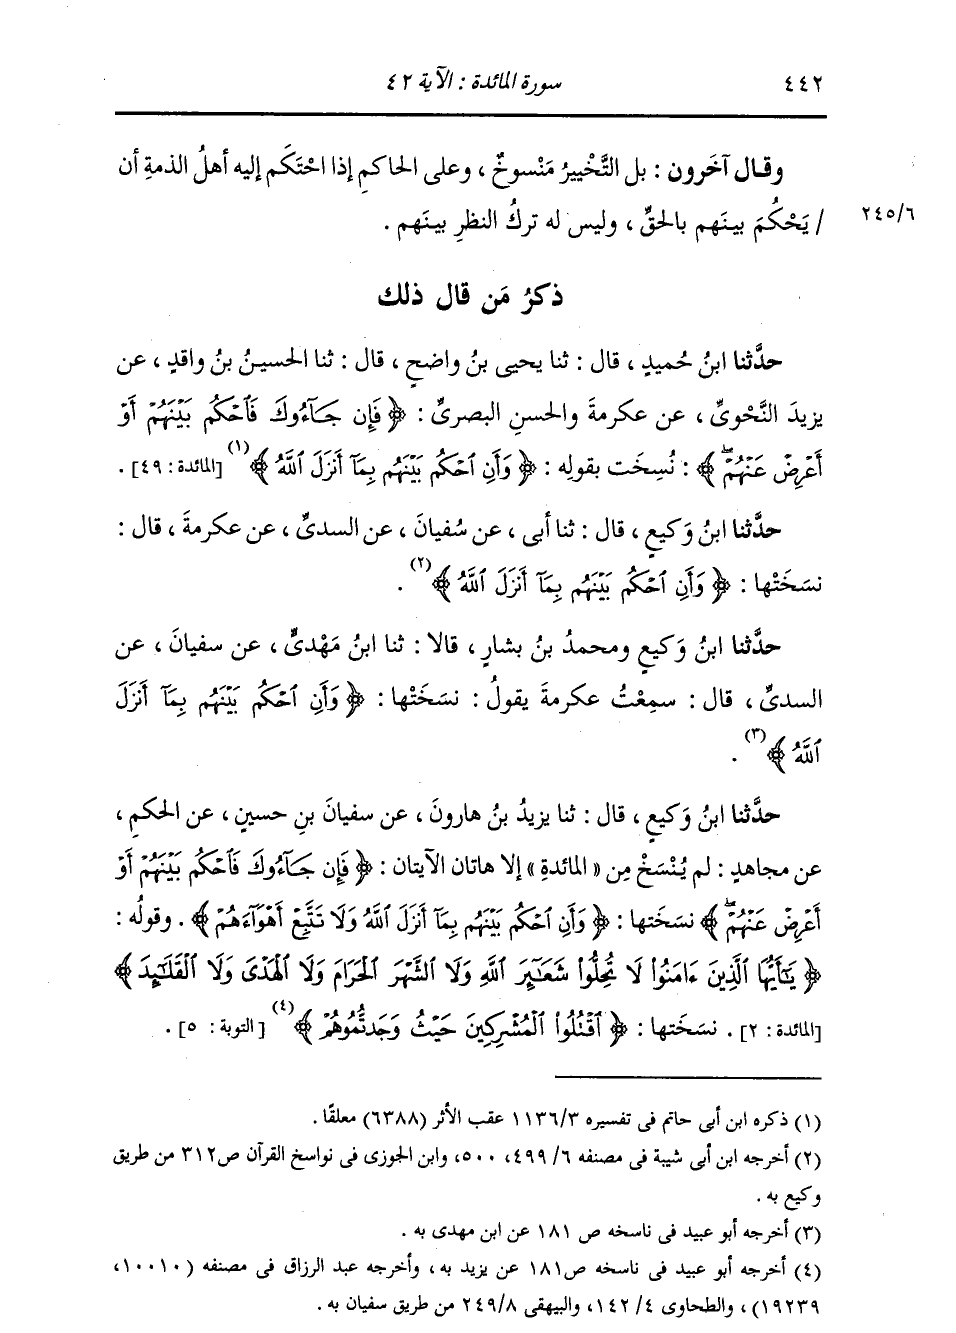 ٤٤٢ سورة المائدة : الآية ٤٢
وقال آخَرون : بل التَّخْييرُ مَنْسوخٌ ، وعلى الحاكمِ إذا احْتَكَم إليه أهلُ الذمةِ أن
٢٤٥/٦ / يَحْكُمَ بينَهم بالحقِّ ، وليس له تركُ النظرِ بينَهم .
ذكرُ مَن قال ذلك
حدَّثنا ابنُ حُميدٍ ، قال : ثنا يحيى بنُ واضحٍ ، قال : ثنا الحسينُ بنُ واقدٍ ، عن
يزيدَ النَّحْوىِّ ، عن عكرمةَ والحسنِ البصرىِّ : ﴿ فَإِن جَآءُوكَ فَٱحْكُم بَيْنَهُمْ أَوْ
أَعْرِضْ عَنْهُمْ ۖ ﴾ : نُسِخَت بقولِه : ﴿ وَأَنِ ٱحْكُم بَيْنَهُم بِمَآ أَنزَلَ ٱللَّهُ ﴾(١) [المائدة: ٤٩] .
حدَّثنا ابنُ وَكيعٍ ، قال : ثنا أبى ، عن سُفيانَ ، عن السدىِّ ، عن عكرمةَ ، قال :
نسَخَتْها : ﴿ وَأَنِ ٱحْكُم بَيْنَهُم بِمَآ أَنزَلَ ٱللَّهُ ﴾(٢) .
حدَّثنا ابنُ وَكيعٍ ومحمدُ بنُ بشارٍ ، قالا : ثنا ابنُ مَهْدىٍّ ، عن سفيانَ ، عن
السدىِّ ، قال : سمِعْتُ عكرمةَ يقولُ : نسَخَتْها : ﴿ وَأَنِ ٱحْكُم بَيْنَهُم بِمَآ أَنزَلَ
ٱللَّهُ ﴾(٣) .
حدَّثنا ابنُ وَكيعٍ ، قال : ثنا يزيدُ بنُ هارونَ ، عن سفيانَ بنِ حسينٍ ، عن الحكمِ ،
عن مجاهدٍ : لم يُنْسَخْ مِن «المائدةِ» إلا هاتان الآيتان : ﴿ فَإِن جَآءُوكَ فَٱحْكُم بَيْنَهُمْ أَوْ
أَعْرِضْ عَنْهُمْ ۖ ﴾ نسَخَتها : ﴿ وَأَنِ ٱحْكُم بَيْنَهُم بِمَآ أَنزَلَ ٱللَّهُ وَلَا تَتَّبِعْ أَهْوَآءَهُمْ ﴾ . وقولُه :
﴿ يَٰٓأَيُّهَا ٱلَّذِينَ ءَامَنُوا۟ لَا تُحِلُّوا۟ شَعَٰٓئِرَ ٱللَّهِ وَلَا ٱلشَّهْرَ ٱلْحَرَامَ وَلَا ٱلْهَدْىَ وَلَا ٱلْقَلَٰٓئِدَ ﴾
[المائدة : ٢] . نسَخَتها : ﴿ ٱقْتُلُوا۟ ٱلْمُشْرِكِينَ حَيْثُ وَجَدتُّمُوهُمْ ﴾(٤) [التوبة : ٥] .
(١) ذكره ابن أبى حاتم فى تفسيره ١١٣٦/٣ عقب الأثر (٦٣٨٨) معلقًا .
(٢) أخرجه ابن أبى شيبة فى مصنفه ٤٩٩/٦، ٥٠٠، وابن الجوزى فى نواسخ القرآن ص٣١٢ من طريق
وكيع به .
(٣) أخرجه أبو عبيد فى ناسخه ص ١٨١ عن ابن مهدى به .
(٤) أخرجه أبو عبيد فى ناسخه ص١٨١ عن يزيد به ، وأخرجه عبد الرزاق فى مصنفه (١٠٠١٠،
١٩٢٣٩) ، والطحاوى ١٤٢/٤، والبيهقى ٢٤٩/٨ من طريق سفيان به .